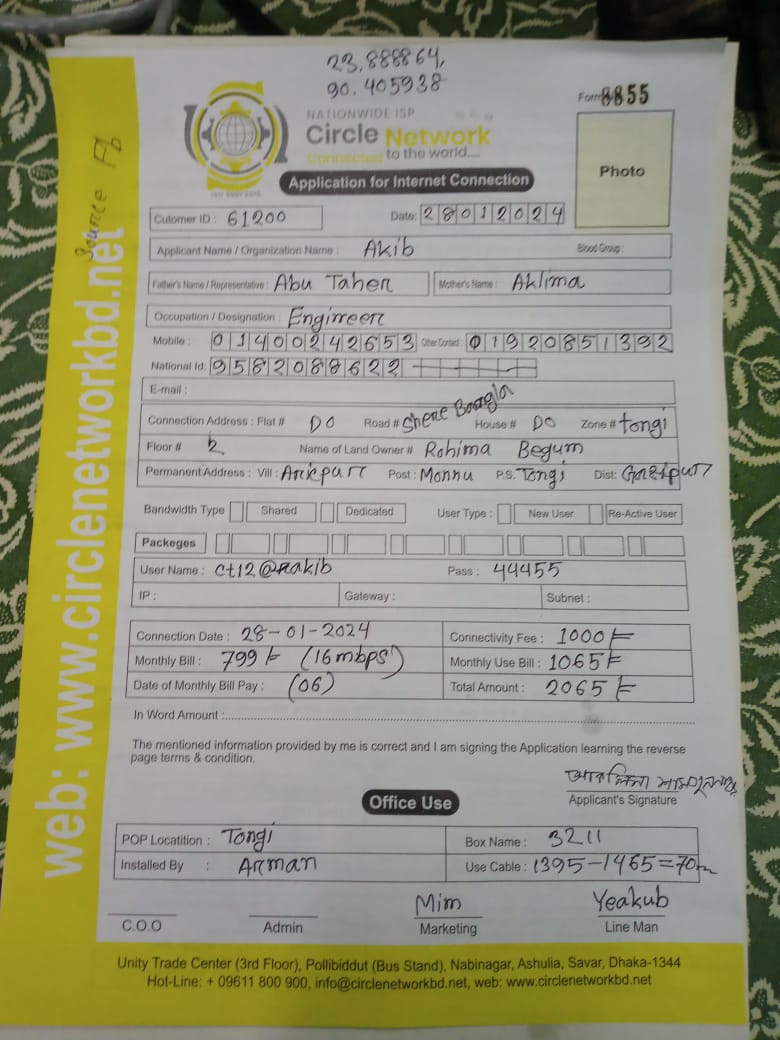 23.888864,
90.405938
Form 8855
NATIONWIDE ISP
Circle Network
Connected to the world....
Application for Internet Connection
Photo
Source Fb
web: www.circlenetworkbd.net
Cutomer ID : 61200 Date: 28012024
Applicant Name / Organization Name : Akib Blood Group :
Father's Name / Representative : Abu Taher Mother's Name : Aklima
Occupation / Designation : Engineer
Mobile : 01400242653 Other Contact : 01920851392
National Id: 9582088622
E-mail :
Connection Address : Flat # DO Road # Shere Bangla House # DO Zone # tongi
Floor # 2 Name of Land Owner # Rohima Begum
Permanent Address : Vill : Aricpur Post : Monnu P.S. Tongi Dist: Gazipur
Bandwidth Type Shared Dedicated User Type : New User Re-Active User
Packeges
User Name : ct12@rakib Pass : 44455
IP : Gateway : Subnet :
Connection Date : 28-01-2024 Connectivity Fee : 1000/=
Monthly Bill : 799/= (16mbps) Monthly Use Bill : 1065/=
Date of Monthly Bill Pay : (06) Total Amount : 2065/=
In Word Amount :
The mentioned information provided by me is correct and I am signing the Application learning the reverse
page terms & condition.
Applicant's Signature
Office Use
POP Locatition : Tongi Box Name : 3211
Installed By : Arman Use Cable : 1395-1465=70m
Mim Yeakub
C.O.O Admin Marketing Line Man
Unity Trade Center (3rd Floor), Pollibiddut (Bus Stand), Nabinagar, Ashulia, Savar, Dhaka-1344
Hot-Line: + 09611 800 900, info@circlenetworkbd.net, web: www.circlenetworkbd.net